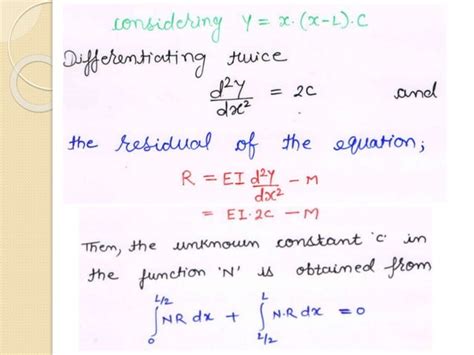 considering Y = x.(x-L).C
Differentiating twice
d²Y/dx² = 2C and
the residual of the equation;
R = EI d²Y/dx² - M
= EI.2C - M
Then, the unknown constant 'C' in
the function 'N' is obtained from
∫₀^{L/2} NR dx + ∫_{L/2}^{L} N.R dx = 0